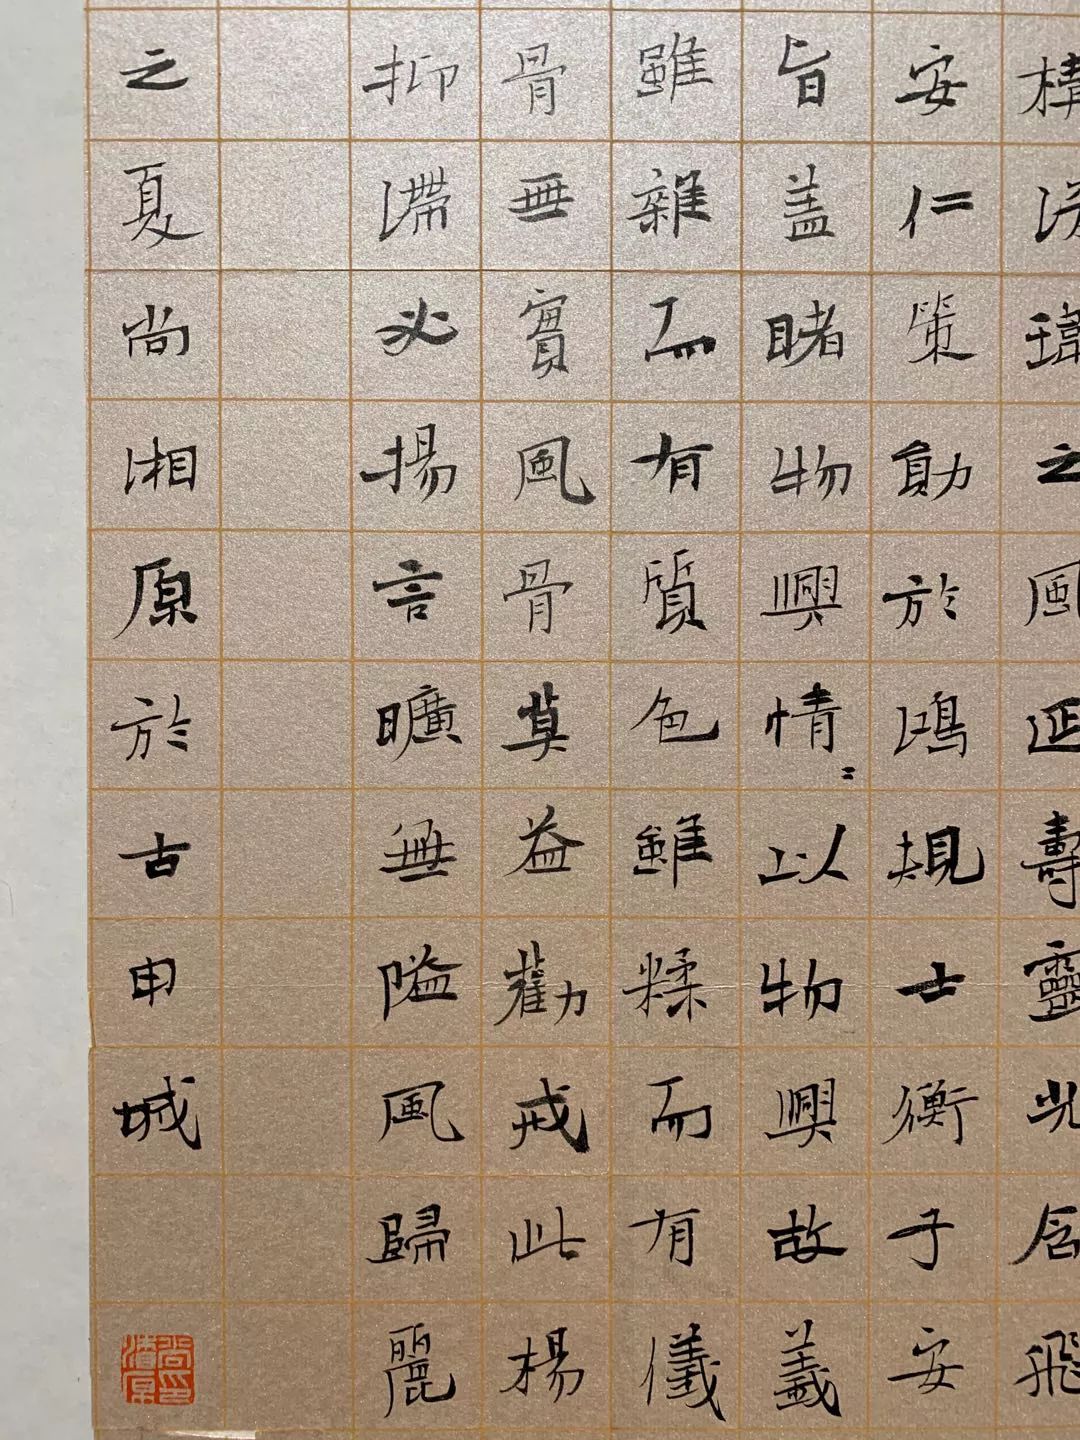 構深瑋之風延壽靈光含飛
安仁策勛於鴻規士衡子安
旨蓋睹物興情〻以物興故義
雖雜而有質色雖糅而有儀
骨無實風骨莫益勸戒此楊
抑滯必揚言曠無隘風歸麗
之夏尚湘原於古申城